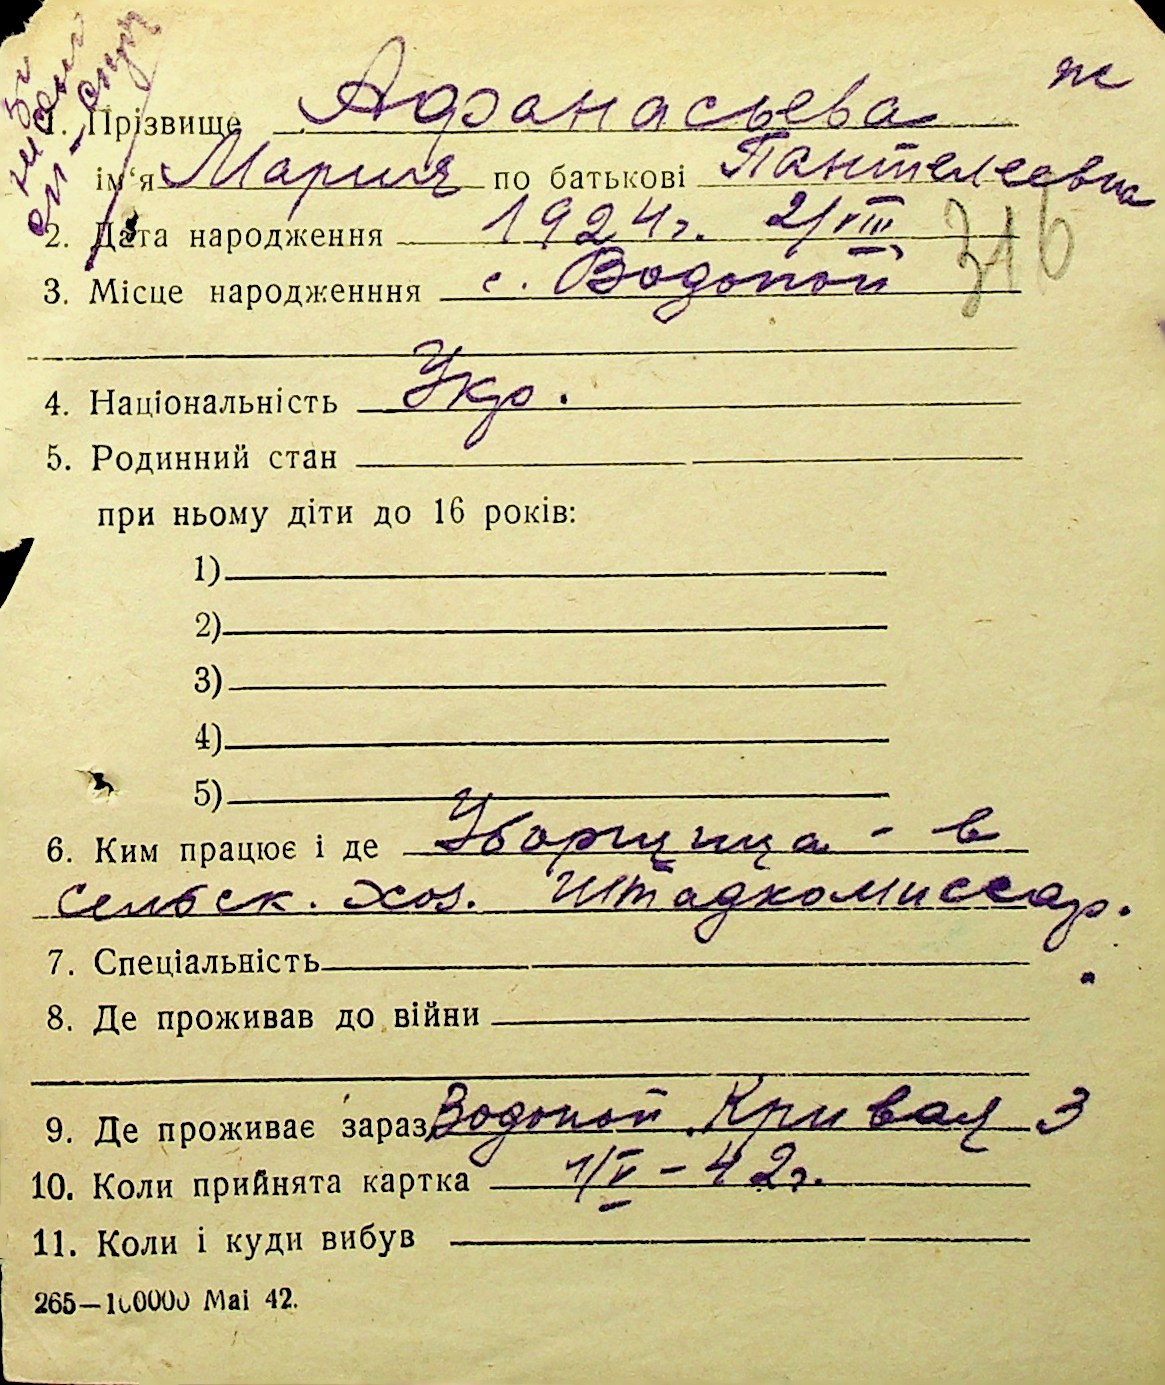 ж
1. Прізвище Афанасьева
ім'я Мария по батькові Пантелеевна
2. Дата народження 1924г. 2/VIII
316
3. Місце народженння с. Водопой
4. Національність Укр.
5. Родинний стан
при ньому діти до 16 років:
1)
2)
3)
4)
5)
6. Ким працює і де Уборщица - в
сельск. хоз. Штадкомиссар.
7. Спеціальність
8. Де проживав до війни
9. Де проживає зараз Водопой Кривая 3
10. Коли прийнята картка 1/V - 42г.
11. Коли і куди вибув
265—100000 Маі 42.